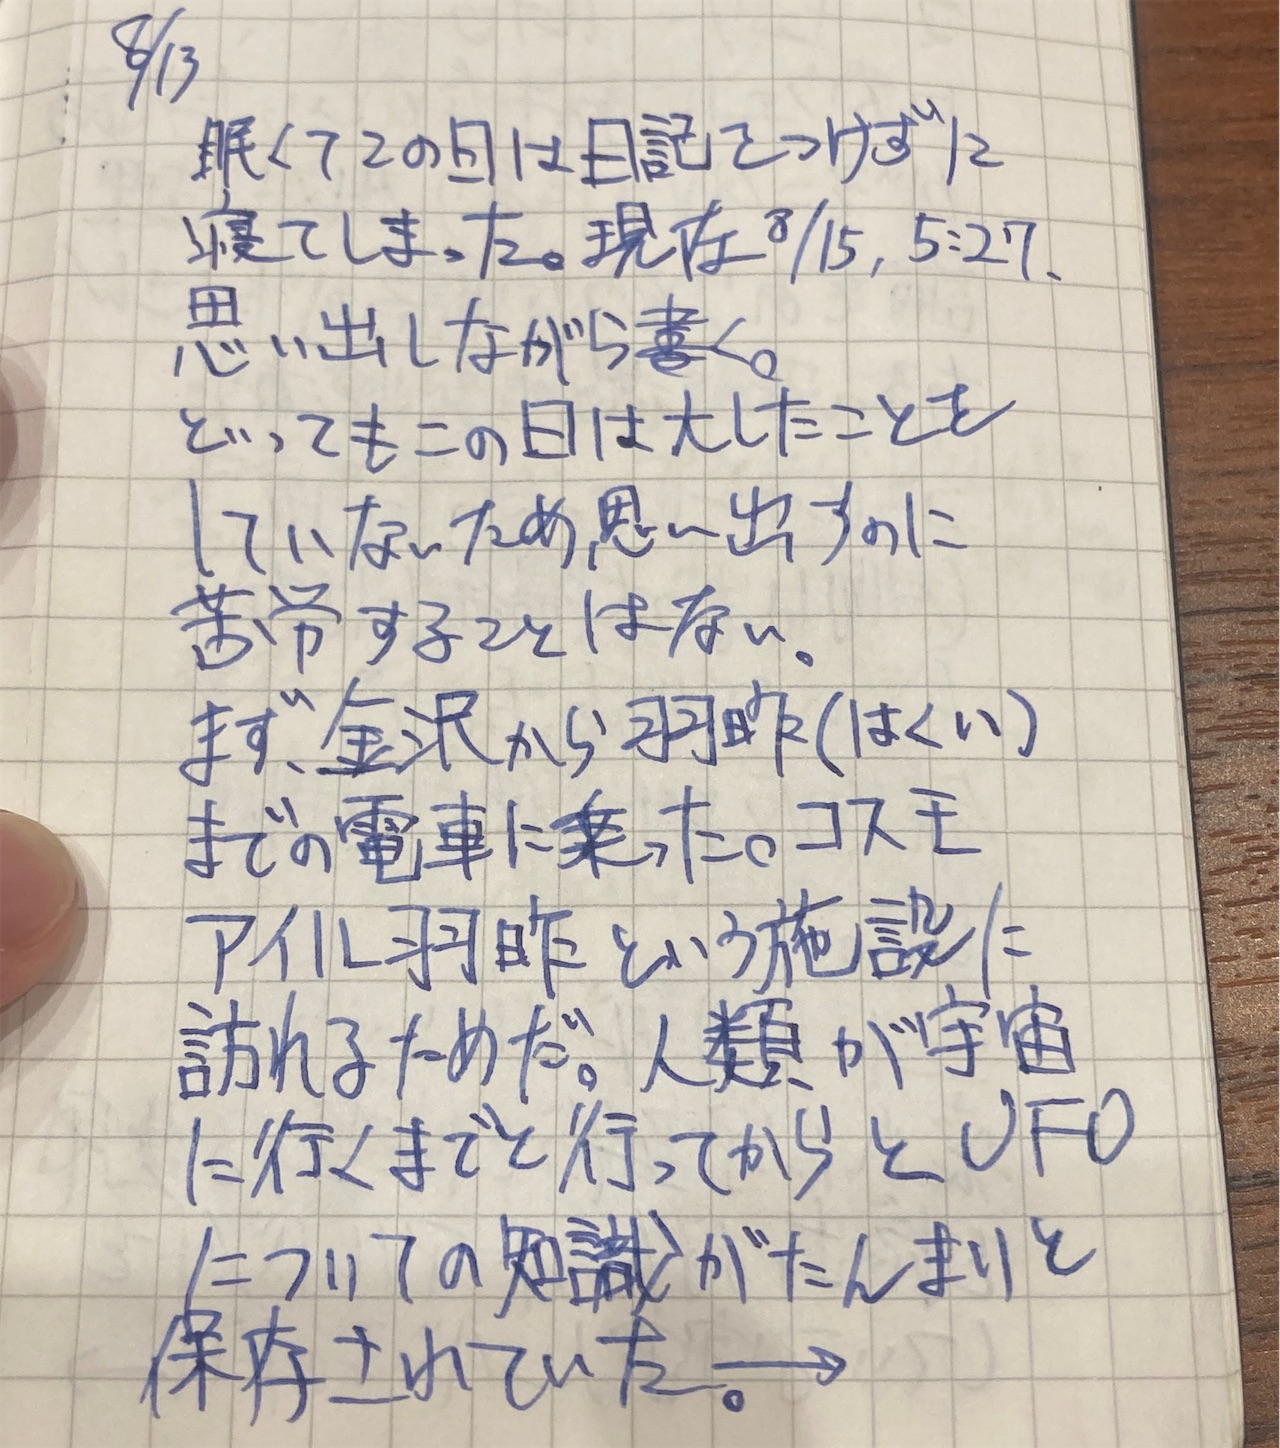 8/13
眠くてこの日は日記をつけずに
寝てしまった。現在8/15, 5:27、
思い出しながら書く。
といってもこの日は大したことを
していないため、思い出すのに
苦労することはない。
まず、金沢から羽咋(はくい)
までの電車に乗った。コスモ
アイル羽咋という施設に
訪れるためだ。人類が宇宙
に行くまでと行ってからとUFO
についての知識がたんまりと
保存されていた。→